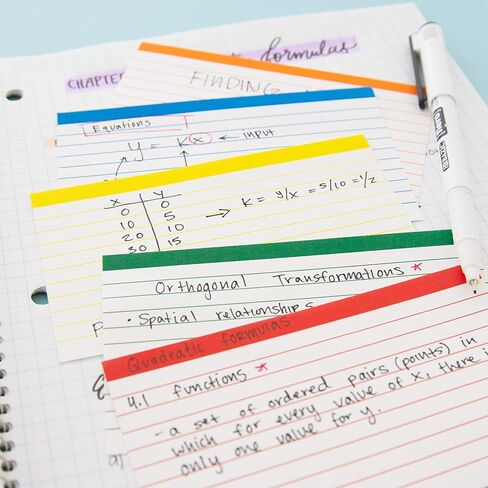 CHAPTER
formulas
FINDING
Equations
y = k(x) ← input
x y
0 0
10 5
20 10
30 15
→ k = y/x = 5/10 = 1/2
Orthogonal Transformations *
• Spatial relationships
Quadratic formulas
4.1 functions *
- a set of ordered pairs (points) in
which for every value of x, there i
only one value for y.